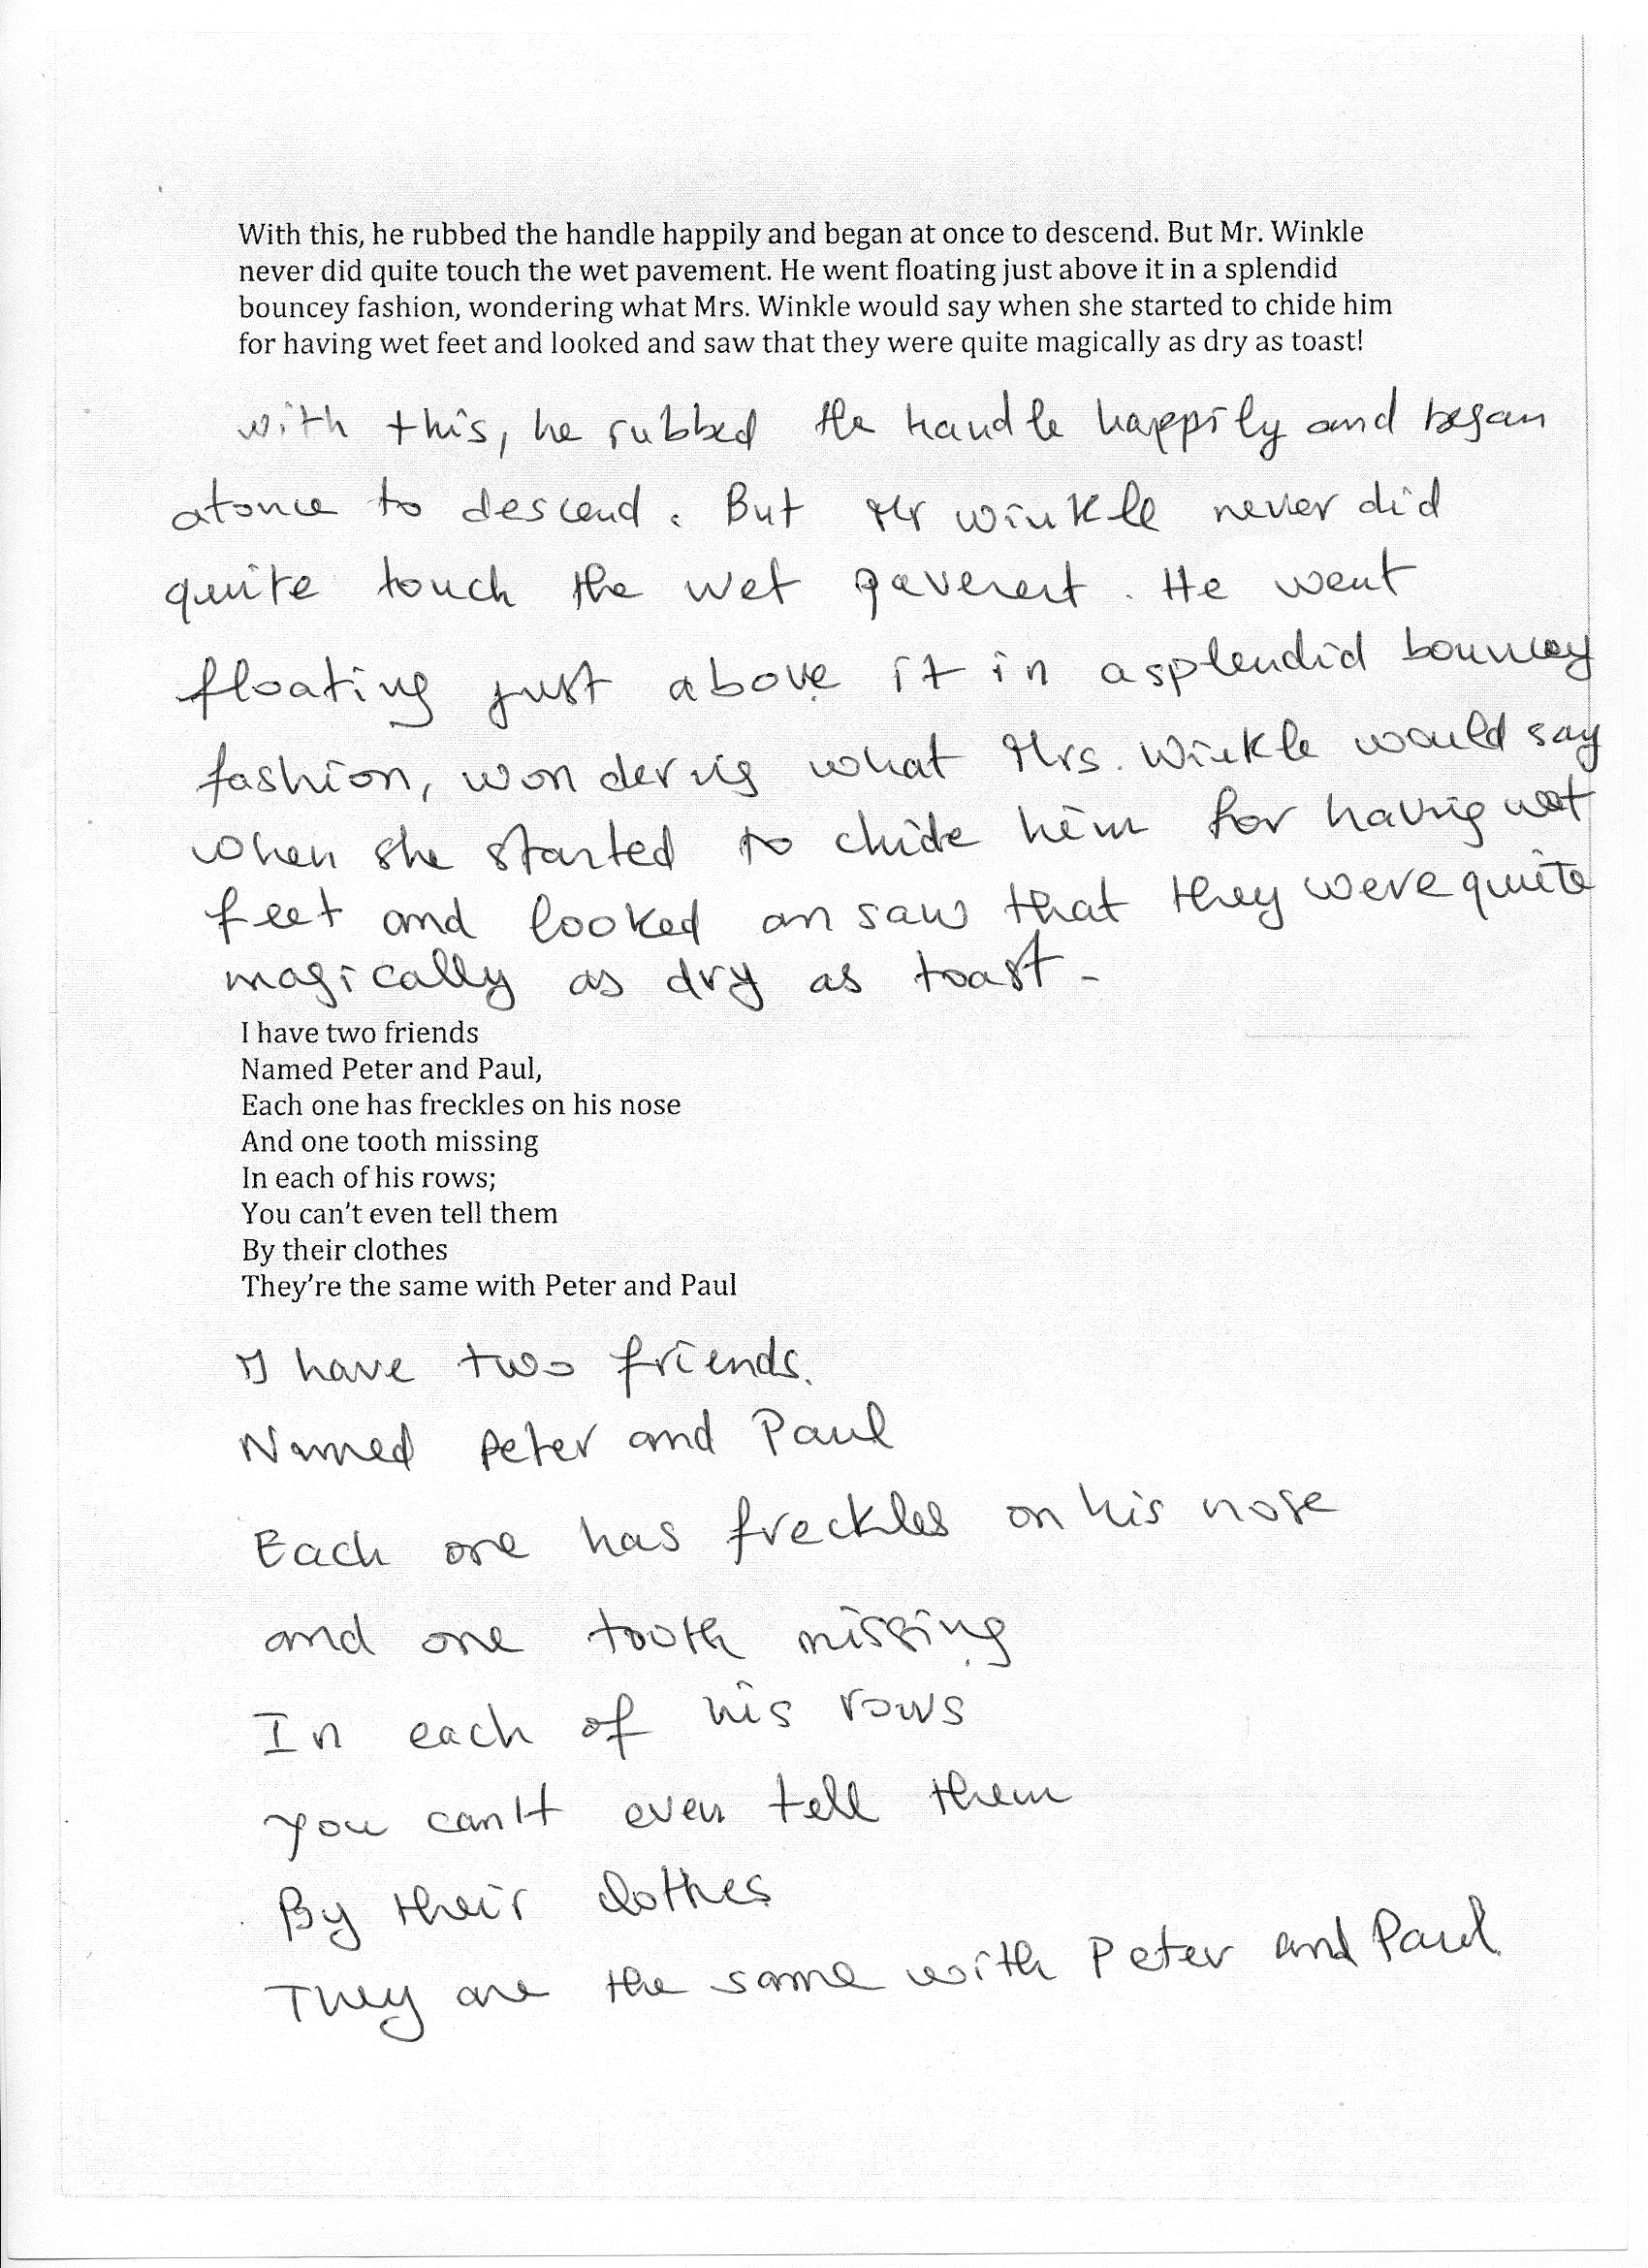 With this, he rubbed the handle happily and began at once to descend. But Mr. Winkle
never did quite touch the wet pavement. He went floating just above it in a splendid
bouncey fashion, wondering what Mrs. Winkle would say when she started to chide him
for having wet feet and looked and saw that they were quite magically as dry as toast!
with this, he rubbed the handle happily and began
atonce to descend. But Mr winkle never did
quite touch the wet pavement. He went
floating just above it in a splendid bouncey
fashion, wondering what Mrs. Winkle would say
when she started to chide him for having wet
feet and looked an saw that they were quite
magically as dry as toast-
I have two friends
Named Peter and Paul,
Each one has freckles on his nose
And one tooth missing
In each of his rows;
You can't even tell them
By their clothes
They're the same with Peter and Paul
I have two friends.
Named Peter and Paul
Each one has freckles on his nose
and one tooth missing
In each of his rows
you can't even tell them
By their clothes
They are the same with Peter and Paul